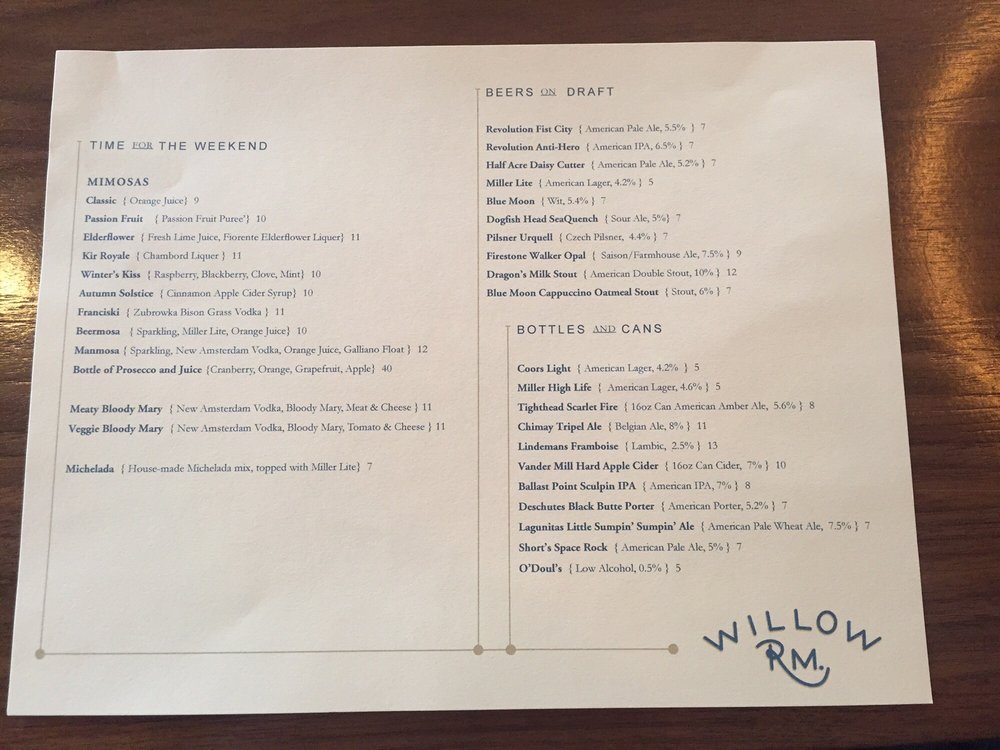 TIME FOR THE WEEKEND
MIMOSAS
Classic { Orange Juice} 9
Passion Fruit { Passion Fruit Puree'} 10
Elderflower { Fresh Lime Juice, Fiorente Elderflower Liquer} 11
Kir Royale { Chambord Liquer } 11
Winter's Kiss { Raspberry, Blackberry, Clove, Mint} 10
Autumn Solstice { Cinnamon Apple Cider Syrup} 10
Franciski { Zubrowka Bison Grass Vodka } 11
Beermosa { Sparkling, Miller Lite, Orange Juice} 10
Manmosa { Sparkling, New Amsterdam Vodka, Orange Juice, Galliano Float } 12
Bottle of Prosecco and Juice {Cranberry, Orange, Grapefruit, Apple} 40
Meaty Bloody Mary { New Amsterdam Vodka, Bloody Mary, Meat & Cheese } 11
Veggie Bloody Mary { New Amsterdam Vodka, Bloody Mary, Tomato & Cheese } 11
Michelada { House-made Michelada mix, topped with Miller Lite} 7
BEERS ON DRAFT
Revolution Fist City { American Pale Ale, 5.5% } 7
Revolution Anti-Hero { American IPA, 6.5% } 7
Half Acre Daisy Cutter { American Pale Ale, 5.2% } 7
Miller Lite { American Lager, 4.2% } 5
Blue Moon { Wit, 5.4% } 7
Dogfish Head SeaQuench { Sour Ale, 5%} 7
Pilsner Urquell { Czech Pilsner, 4.4% } 7
Firestone Walker Opal { Saison/Farmhouse Ale, 7.5% } 9
Dragon's Milk Stout { American Double Stout, 10% } 12
Blue Moon Cappuccino Oatmeal Stout { Stout, 6% } 7
BOTTLES AND CANS
Coors Light { American Lager, 4.2% } 5
Miller High Life { American Lager, 4.6% } 5
Tighthead Scarlet Fire { 16oz Can American Amber Ale, 5.6% } 8
Chimay Tripel Ale { Belgian Ale, 8% } 11
Lindemans Framboise { Lambic, 2.5% } 13
Vander Mill Hard Apple Cider { 16oz Can Cider, 7% } 10
Ballast Point Sculpin IPA { American IPA, 7% } 8
Deschutes Black Butte Porter { American Porter, 5.2% } 7
Lagunitas Little Sumpin' Sumpin' Ale { American Pale Wheat Ale, 7.5% } 7
Short's Space Rock { American Pale Ale, 5% } 7
O'Doul's { Low Alcohol, 0.5% } 5
WILLOW
RM.